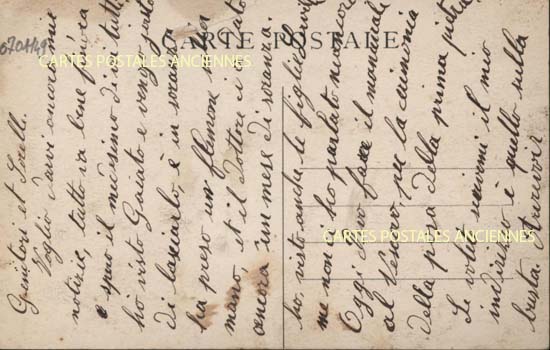 6704/49
CARTE POSTALE
CARTES POSTALES ANCIENNES
CARTES POSTALES ANCIENNES
Genitori et Sorelle.
Voglio darvi ancora mie
notizie, tutto va bene finora
e spero il medesimo di voi tutti
ho visto Gaiato e vengo
di lasciarlo, è in
ha preso un flemone
mano, et il dottore
ancora un mese di
ho visto anche le figlie
me non ho parlato
Oggi devo fare il manuale
al Vescovo per la cerimonia
della posa della prima pietra
Se volete scrivermi il mio
indirizzo è quello sulla
busta.